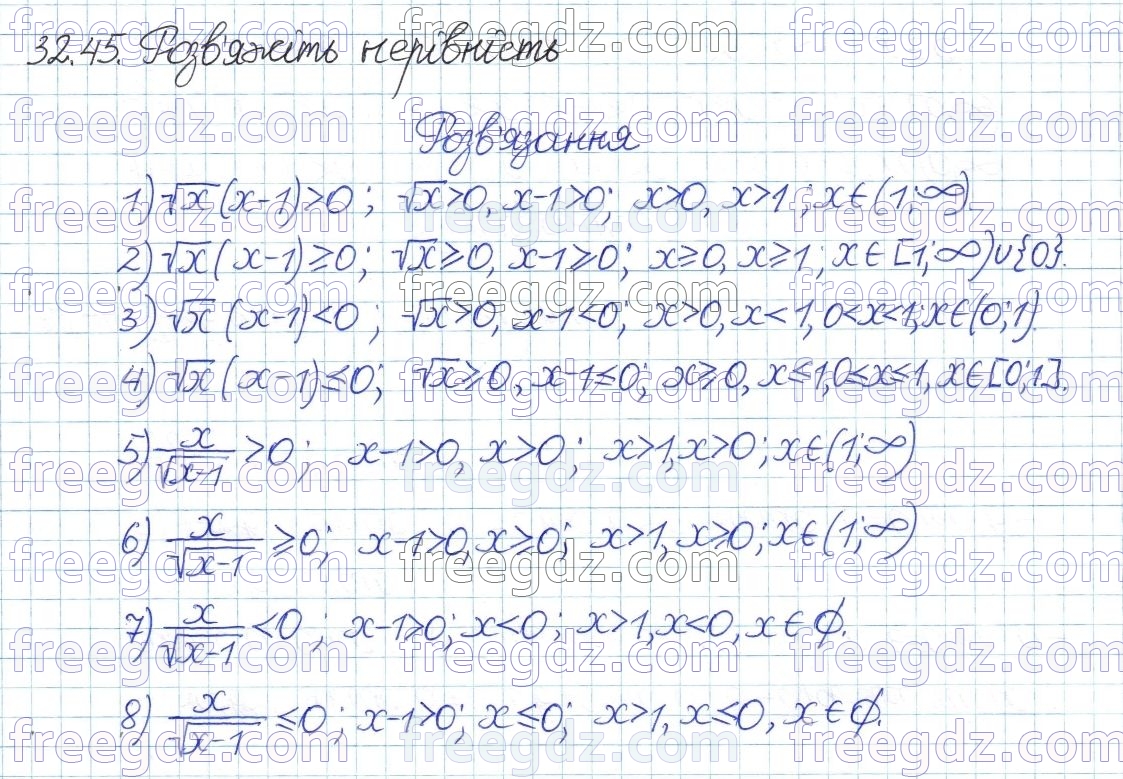 32.45. Розв'яжіть нерівність
Розв'язання
1) √x (x-1)>0; √x>0, x-1>0; x>0, x>1; x∈(1;∞).
2) √x (x-1)≥0; √x≥0, x-1≥0; x≥0, x≥1; x∈[1;∞)∪{0}.
3) √x (x-1)<0; √x>0, x-1<0; x>0, x<1, 0<x<1; x∈(0;1).
4) √x (x-1)≤0; √x≥0, x-1≤0; x≥0, x≤1, 0≤x≤1, x∈[0;1].
5) x/√(x-1) >0; x-1>0, x>0; x>1, x>0; x∈(1;∞)
6) x/√(x-1) ≥0; x-1>0, x≥0; x>1, x≥0; x∈(1;∞)
7) x/√(x-1) <0; x-1>0; x<0; x>1, x<0, x∈∅.
8) x/√(x-1) ≤0; x-1>0; x≤0; x>1, x≤0, x∈∅.
freegdz.com